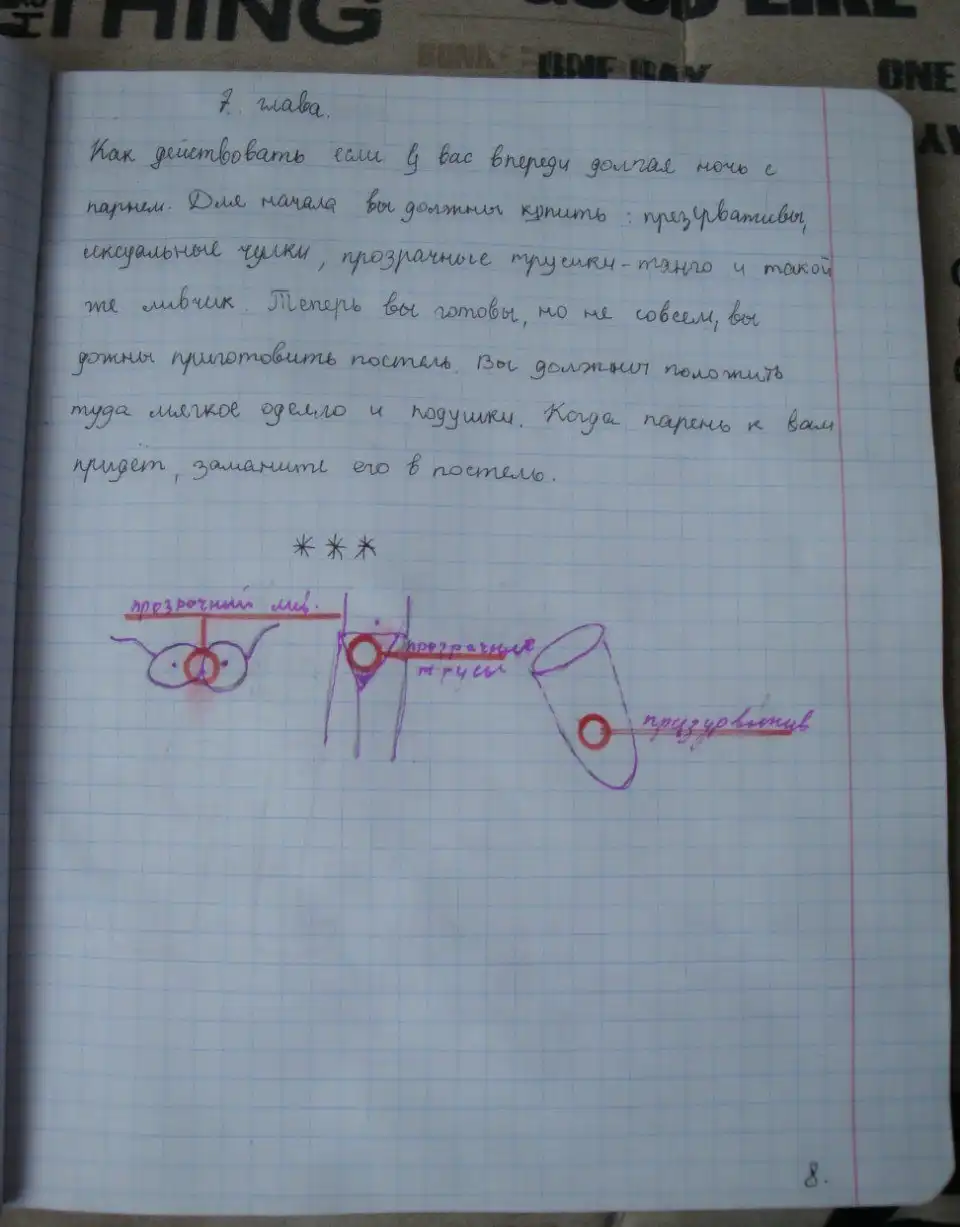 THING
GOOD LIKE
ONE DAY
ONE
7. глава.
Как действовать если у вас впереди долгая ночь с
парнем. Для начала вы должны купить: презурвативы,
сексуальные чулки, прозрачные трусики-тянго и такой
же ливчик. Теперь вы готовы, но не совсем, вы
дожны приготовить постель. Вы должны положить
туда мягкое одеяло и подушки. Когда парень к вам
придёт, заманите его в постель.
***
прозрачный лив.
прозрачные
трусы
презурватив
8.